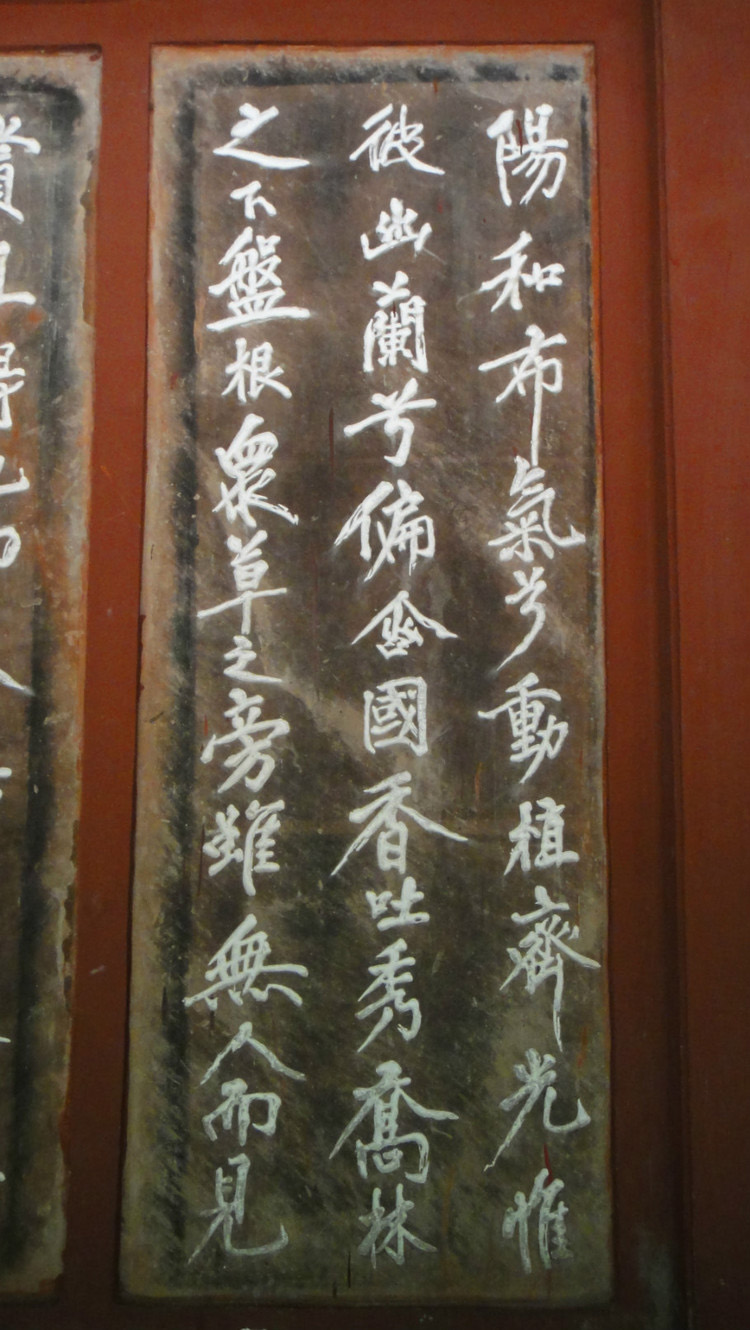 陽和布氣兮動植齊光惟
彼幽蘭兮偏含國香吐秀喬林
之下盤根衆草之旁雖無人而見
賞且得